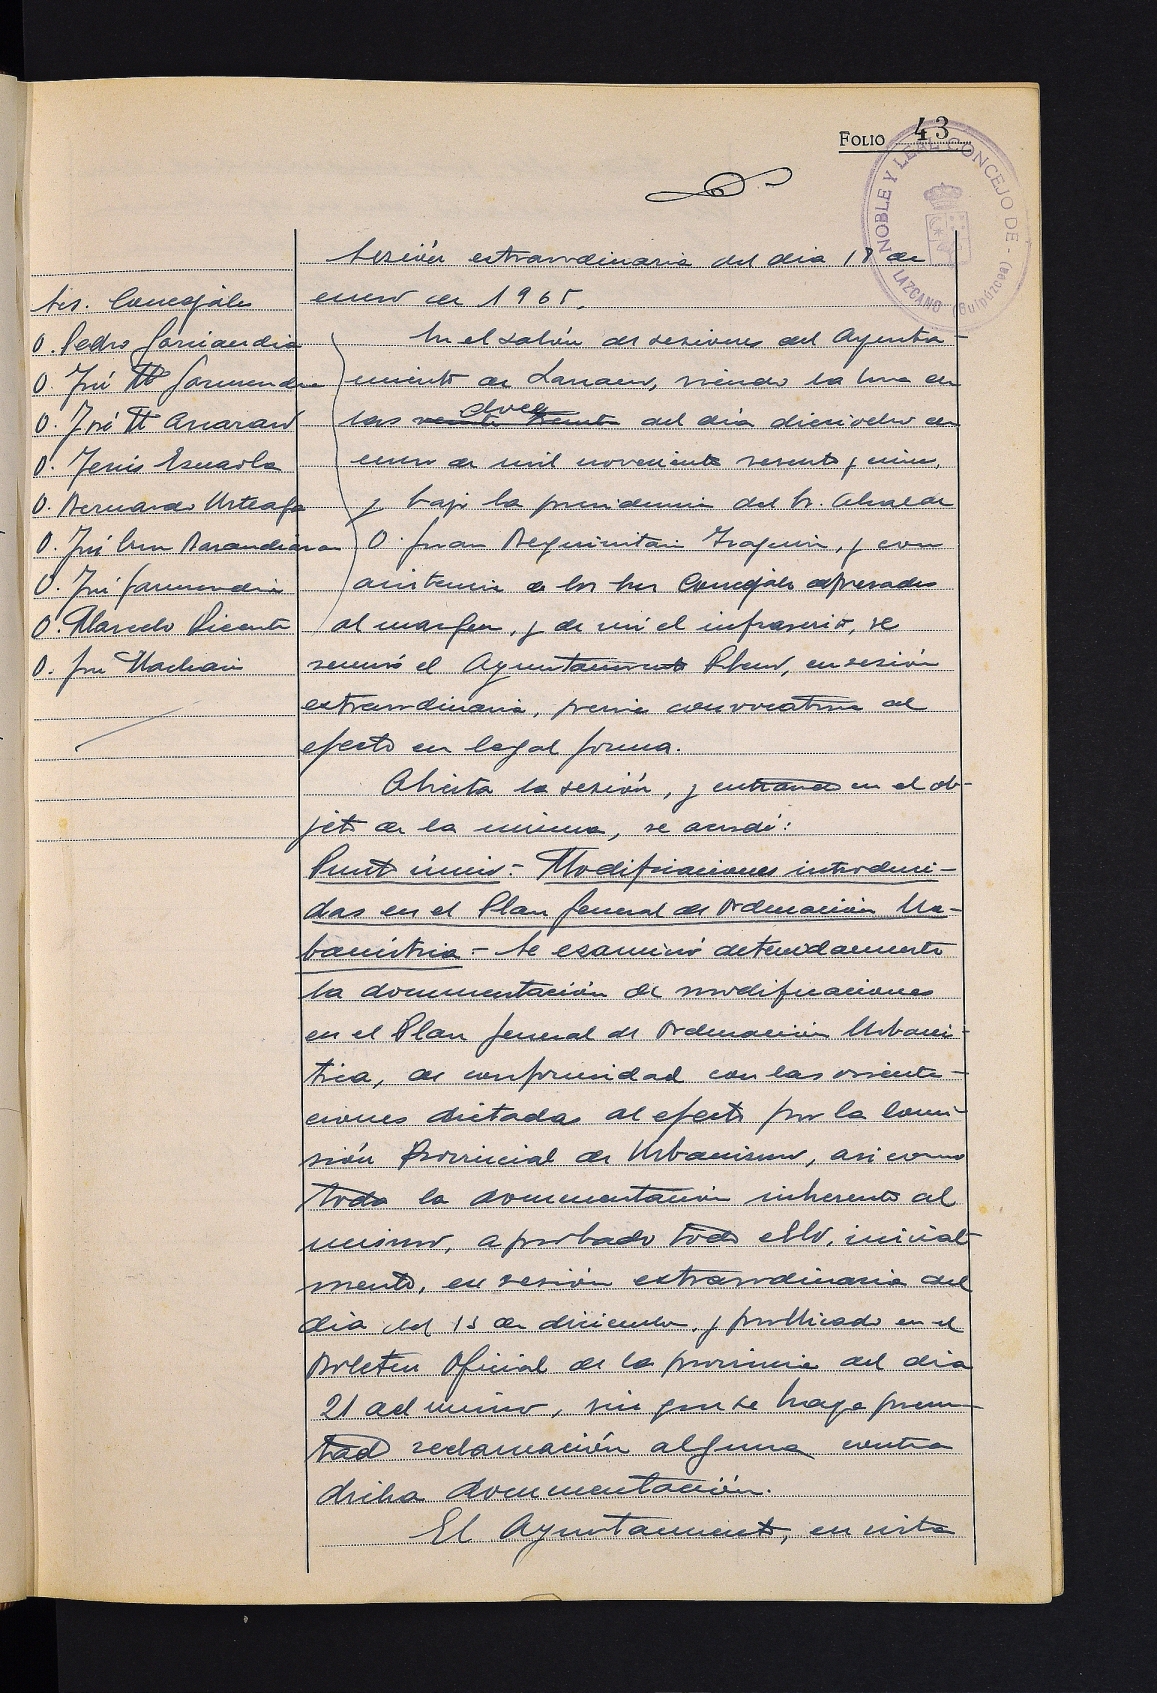 FOLIO 43
NOBLE Y LEAL CONCEJO DE - LAZCANO (Guipúzcoa)
Sesión extraordinaria del dia 18 de
enero de 1965.
Sres. Concejales
D. Pedro Garciandia
D. José Mª Garmendia
D. José Mª
D. Jesús Escaola
D. Bernardo Urteaga
D. José Barandiaran
D. José Garmendia
D. Marcelo Vicente
D. José
En el salón de sesiones del Ayunta-
miento de Lazcano, siendo la hora de
las doce del día dieciocho de
enero de mil novecientos sesenta y cinco,
y bajo la presidencia del Sr. Alcalde
D. Juan Beguiristain, y con
asistencia de los Sres Concejales expresados
al margen, y de mí el infrascrito, se
reunió el Ayuntamiento Pleno, en sesión
extraordinaria, previa convocatoria al
efecto en legal forma.
Abierta la sesión, y entrando en el ob-
jeto de la misma, se acordó:
Punto único.- Modificaciones introduci-
das en el Plan General de Ordenación Ur-
banística.- Se examinó detenidamente
la documentación de modificaciones
en el Plan General de Ordenación Urbanís-
tica, de conformidad con las orienta-
ciones dictadas al efecto por la Comi-
sión Provincial de Urbanismo, asi como
toda la documentación inherente al
mismo, aprobado todo ello, inicial-
mente, en sesión extraordinaria del
día del 15 de diciembre, y publicado en el
Boletin Oficial de la provincia del dia
21 del mismo, sin que se haya presen-
tado reclamación alguna contra
dicha documentación.
El Ayuntamiento, en vista